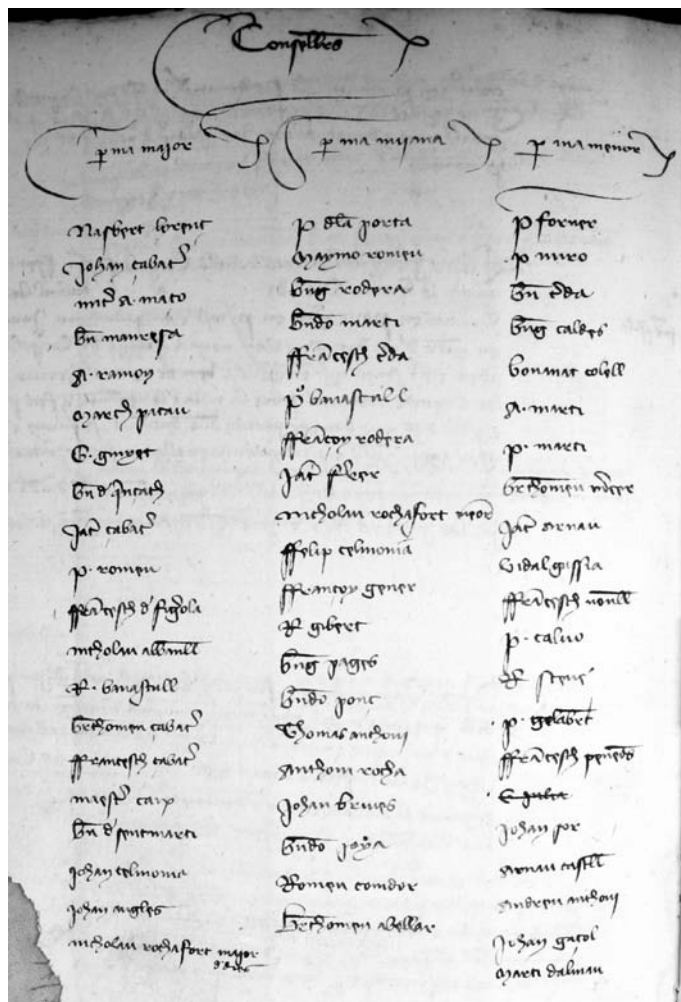 Consellers
p ma major
p ma mijana
p ma menor
Nasbert lorenc
Johan çabat
A mato
bn manresa
A. ramon
March picau
G. guyet
bn d
Jac çabat
p. romeu
ffrancesch d figola
Nicholau
R. banastull
bthomeu çabat
ffrancesch çabat
maestr carp
bn d sentmarti
johan celmonia
johan angles
nicholau rochafort major
p dla porta
Maymo romeu
bng rodera
bndo marti
ffrancesch
p banastull
ffrancoy rodera
Jac
Nicholau rochafort menor
ffelip celmonia
ffrancoy gener
R gibert
bng pages
bndo ponc
Thomas anthoni
Anthoni rocha
Johan
bndo joya
Romeu comdor
bthomeu abellar
p forner
p miro
bn
bng caldes
bonanat colell
A. marti
p. marti
bthomeu mcer
Jac arnau
Vidal
ffrancesch
p. calvo
R
p. gelabert
ffrancesch penedes
Johan sor
Arnau castell
Andreu anthoni
Johan gaçol
Marti dalmau